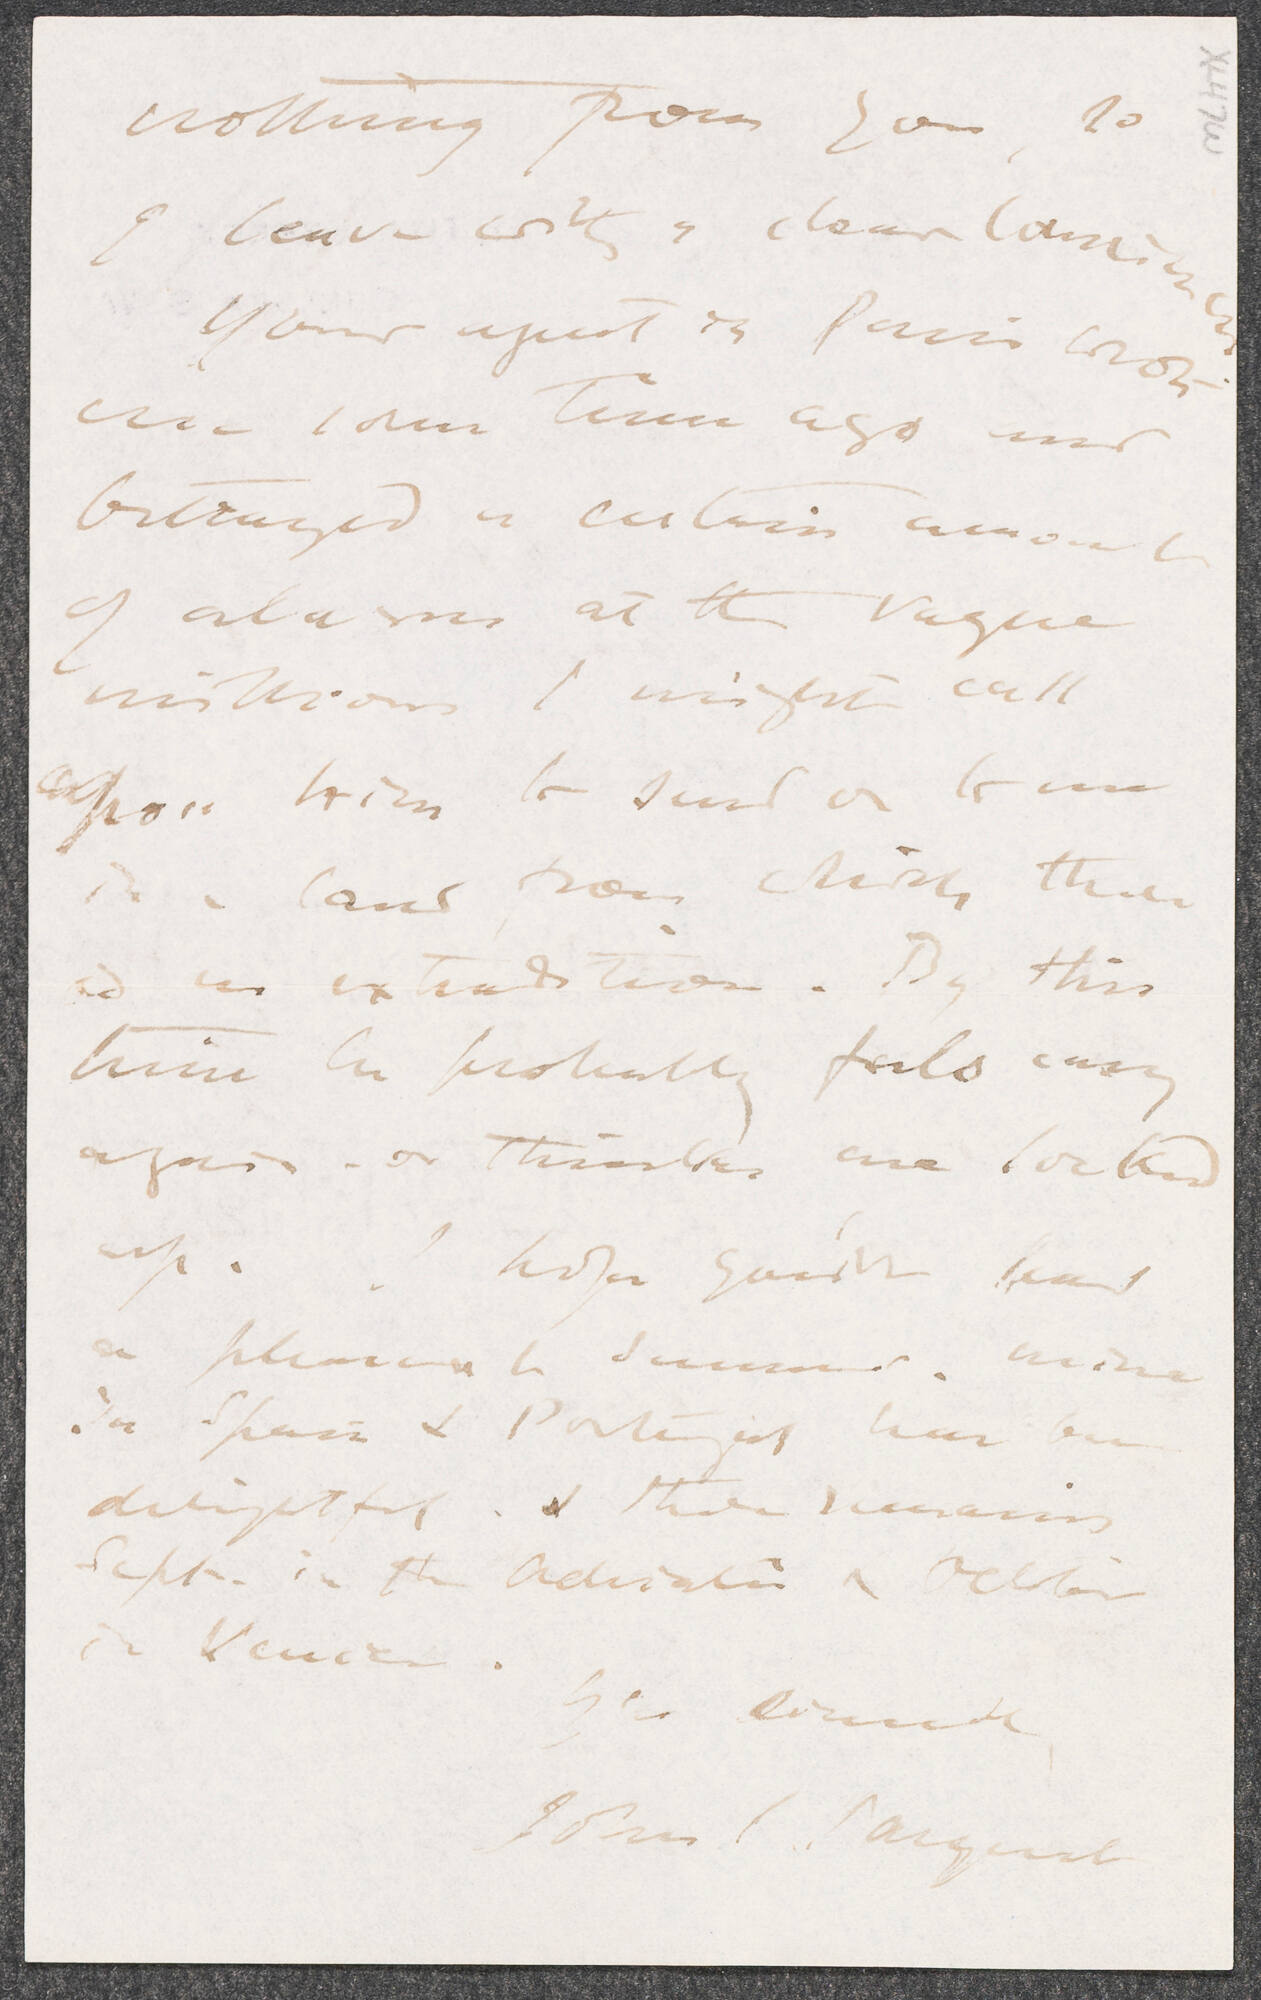 nothing from you, so
I leave with a clear conscience.
Your agent in Paris wrote
me some time ago and
betrayed a certain amount
of alarm at the vague
millions I might call
upon him to send on to me
in a land from which there
is no extradition. By this
time he probably feels easy
again - or thinks me locked
up. I hope you've had
a pleasant summer. mine
in Spain & Portugal has been
delightful. & there remains
Sept. in the Adriatic & October
in Venice.
Yrs sincerely,
John S. Sargent